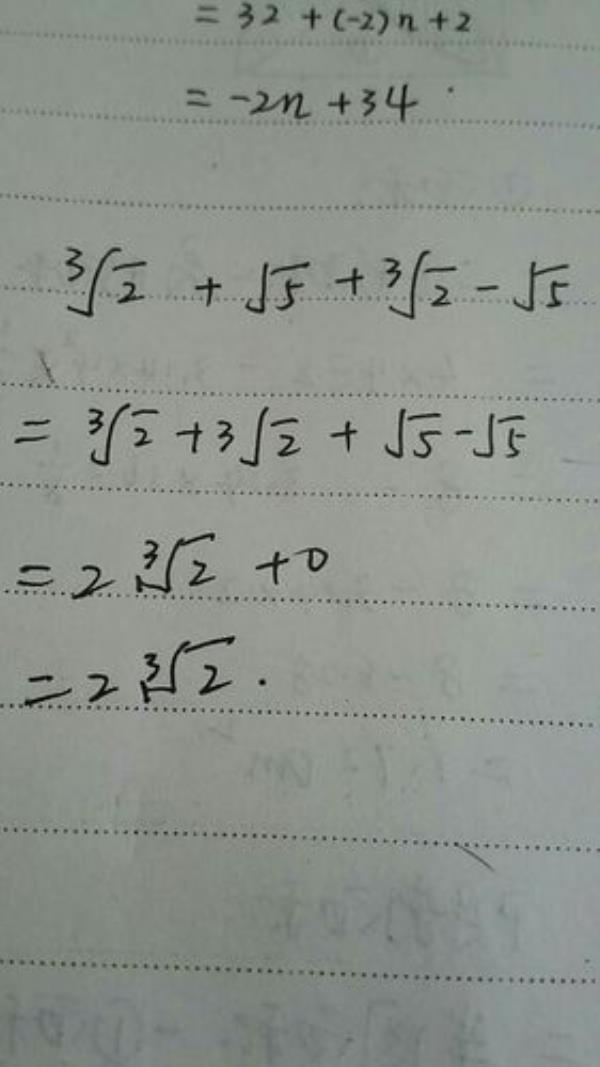 = 32 + (-2)n + 2
= -2n + 34 .
∛2 + √5 + ∛2 - √5
= ∛2 + 3√2 + √5 - √5
= 2 ∛2 + 0
= 2 ∛2 .